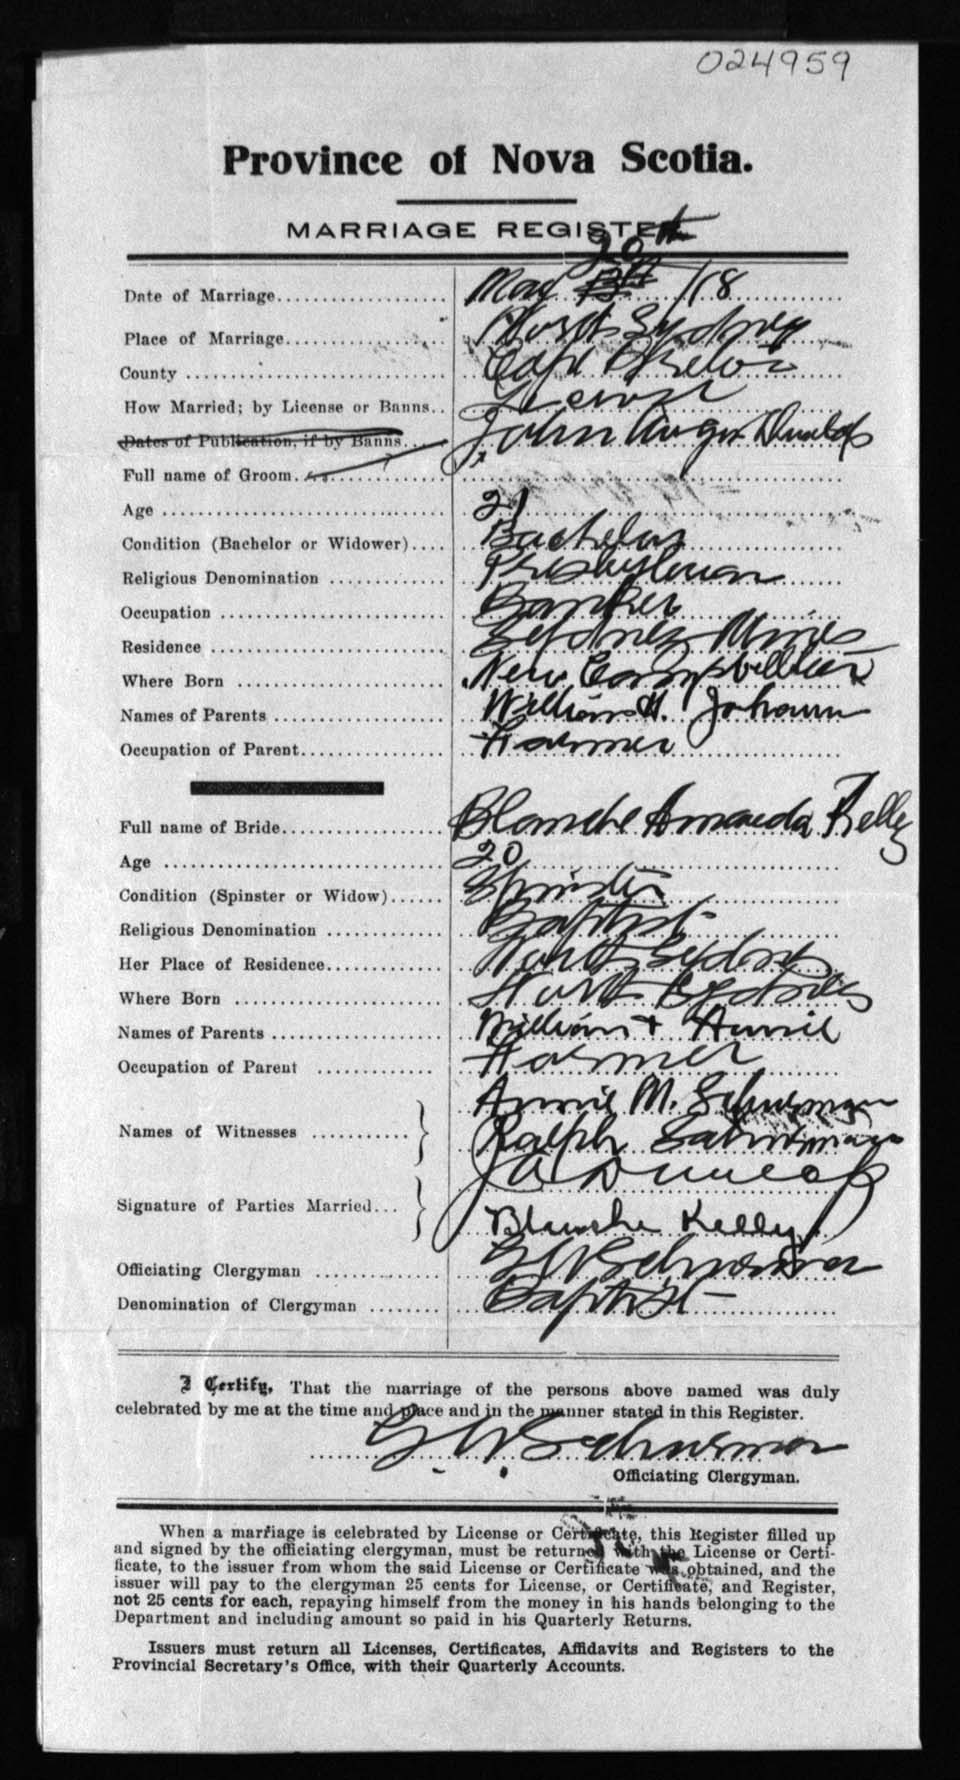 024959
Province of Nova Scotia.
MARRIAGE REGISTER
20th
Date of Marriage.................... May /18
Place of Marriage................... North Sydney
County .............................. Cape Breton
How Married; by License or Banns.. License
Dates of Publication, if by Banns.... John Dunlop
Full name of Groom..................
Age .................................. 21
Condition (Bachelor or Widower).... Bachelor
Religious Denomination .............. Presbyterian
Occupation ........................... Banker
Residence ............................ Sydney Mines
Where Born .......................... New Campbellton
Names of Parents .................... William H. Johann
Occupation of Parent................. Farmer
Full name of Bride................... Blanche Amanda Kelly
Age .................................. 20
Condition (Spinster or Widow)...... Spinster
Religious Denomination .............. Baptist
Her Place of Residence.............. North Sydney
Where Born .......................... North Sydney
Names of Parents .................... William + Annie
Occupation of Parent .............. Farmer
Annie M. Schurman
Names of Witnesses ............ } Ralph Schurman
J A Dunlop
Signature of Parties Married... }
Blanche Kelly
Officiating Clergyman ............... G W Schurman
Denomination of Clergyman ........ Baptist
I Certify, That the marriage of the persons above named was duly
celebrated by me at the time and place and in the manner stated in this Register.
G. W. Schurman
Officiating Clergyman.
When a marriage is celebrated by License or Certificate, this Register filled up
and signed by the officiating clergyman, must be returned with the License or Certi-
ficate, to the issuer from whom the said License or Certificate was obtained, and the
issuer will pay to the clergyman 25 cents for License, or Certificate, and Register,
not 25 cents for each, repaying himself from the money in his hands belonging to the
Department and including amount so paid in his Quarterly Returns.
Issuers must return all Licenses, Certificates, Affidavits and Registers to the
Provincial Secretary's Office, with their Quarterly Accounts.